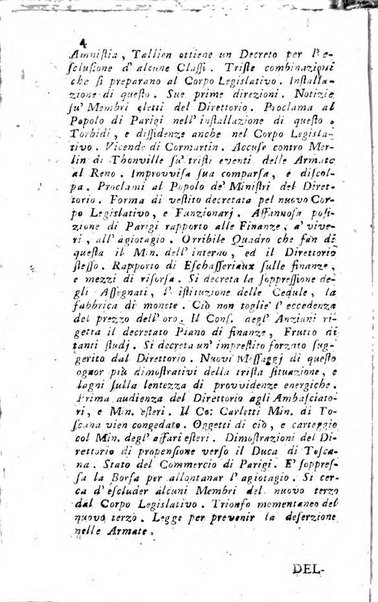 4
Amnistia, Tallien ottiene un Decreto per l'e-
sclusione d'alcune Classi. Triste combinazioni
che si preparano al Corpo Legislativo. Installa-
zione di questo. Sue prime direzioni. Notizie
su' Membri eletti del Direttorio. Proclama al
Popolo di Parigi nell'installazione di questo.
Torbidi, e diffidenze anche nel Corpo Legisla-
tivo. Vicende di Cormartin. Accuse contro Mer-
lin di Thonville su' tristi eventi delle Armate
al Reno. Improvvisa sua comparsa, e discol-
pa. Proclami al Popolo de' Ministri del Diret-
torio. Forma di vestito decretata pel nuovo Cor-
po Legislativo, e Fanzionarj. Affannosa posi-
zione di Parigi rapporto alle Finanze, a' vive-
ri, all'agiotagio. Orribile Quadro che fan di
questa il Min. dell'interno, ed il Direttorio
stesso. Rapporto di Eschasseriaux sulle finanze,
e mezzi di risorsa. Si decreta la soppressione de-
gli Assegnati, l'istituzione delle Cedule, la
fabbrica di monete. Ciò non toglie l'eccedenza
del prezzo dell'oro. Il Cons. degl'Anziani ri-
getta il decretato Piano di finanze, Frutto di
tanti studj. Si decreta un'imprestito forzato sug-
gerito dal Direttorio. Nuovi Messaggj di questo
ognor più dimostrativi della trista situazione, e
lagni sulla lentezza di provvidenze energiche.
Prima audienza del Direttorio agli Ambasciato-
ri, e Min. esteri. Il Co: Carlotti Min. di To-
scana vien congedato. Oggetti di ciò, e carteggio
col Minis. degl'affari esteri. Dimostrazioni del Di-
rettorio di propensione verso il Duca di Tosca-
na. Stato del Commercio di Parigi. E' soppres-
sa la Borsa per allontanar l'agiotagio. Si cer-
ca d'escluder alcuni Membri del nuovo terzo
dal Corpo Legislativo. Trionfo momentaneo del
nuovo terzo. Legge per prevenir la deserzione
nelle Armate.
DEL-